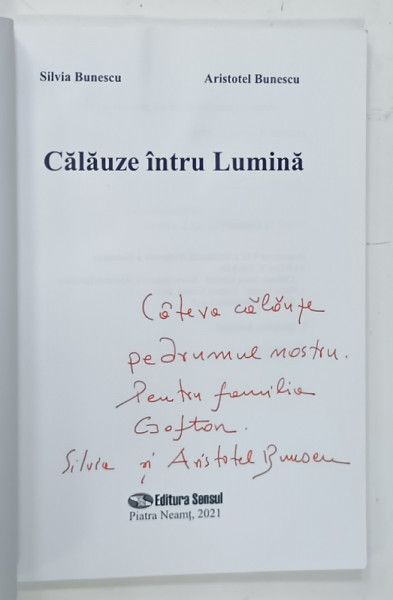 Silvia Bunescu Aristotel Bunescu
Călăuze întru Lumină
Câteva călăuze
pe drumul nostru.
Pentru familia
Gofton.
Silvia și Aristotel Bunescu
Editura Sensul
Piatra Neamț, 2021